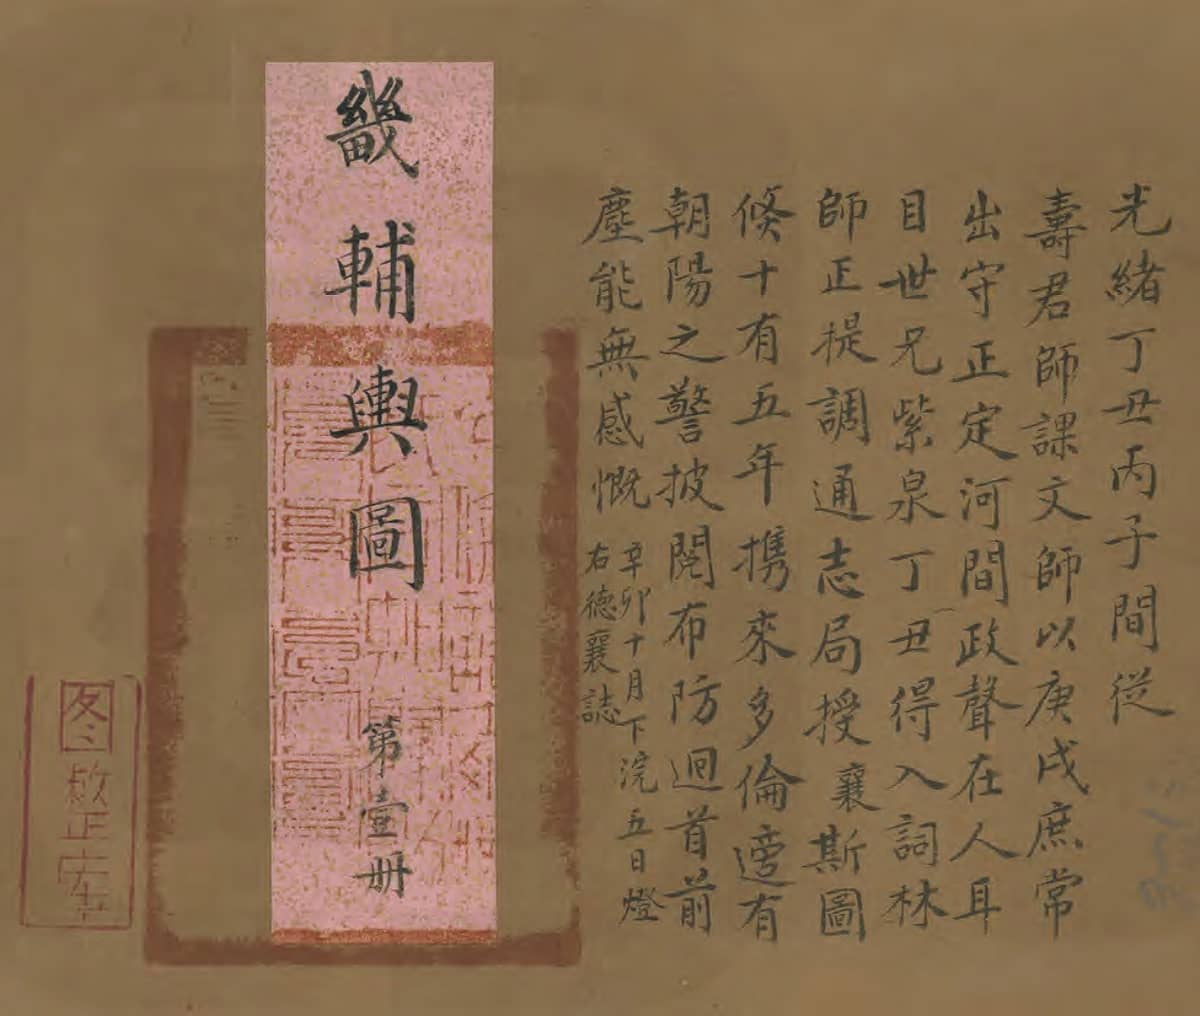 光緒丁丑丙子間從
壽君師課文師以庚戌庶常
出守正定河間政聲在人耳
目世兄紫泉丁丑得入詞林
師正提調通志局授襄斯圖
倐十有五年携來多倫適有
朝陽之警披閱布防迴首前
塵能無感慨
辛卯十月下浣五日燈
右德襄誌
畿輔輿圖
第壹冊